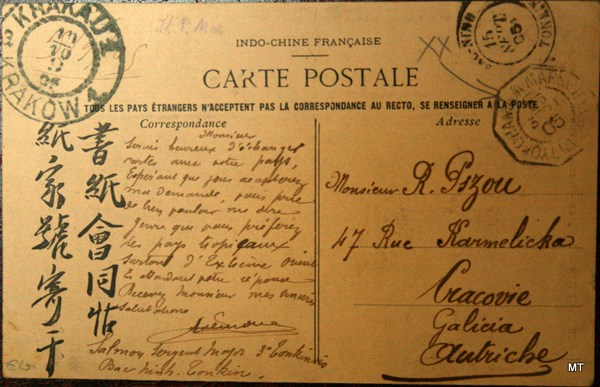 INDO-CHINE FRANÇAISE
CARTE POSTALE
TOUS LES PAYS ÉTRANGERS N'ACCEPTENT PAS LA CORRESPONDANCE AU RECTO, SE RENSEIGNER A LA POSTE
Correspondance
Adresse
KRAKAU
KRAKÓW
TONKIN
XX
Monsieur
Serais heureux d'échanger
cartes avec votre pays,
Espérant que vous accepterez
ma demande, vous prie
de bien vouloir me dire
genre que vous préférez
les pays tropicaux
Surtout d'Extrême Orient
En attendant votre réponse
Recevez Monsieur mes
Salutations
Salmon Sergent Major 3e Tonkinois
Bac Ninh Tonkin
書紙會同帖
紙家號寄于
Monsieur R. Pszou
47 Rue Karmelicka
Cracovie
Galicia
Autriche
MT